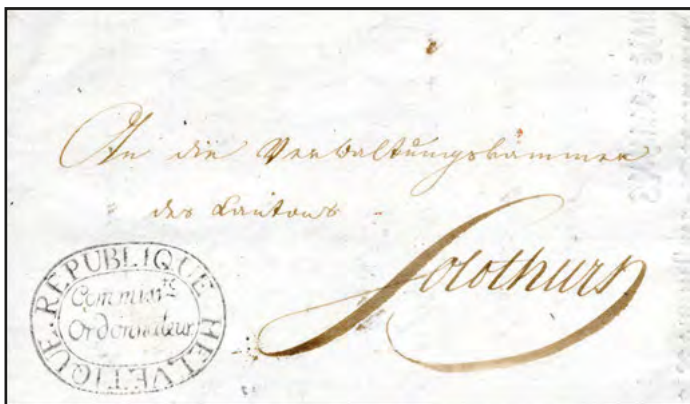 An die Verwaltungskammer
des Kantons
Solothurn
REPUBLIQUE HELVETIQUE.
Commiss.re
Ordonnateur